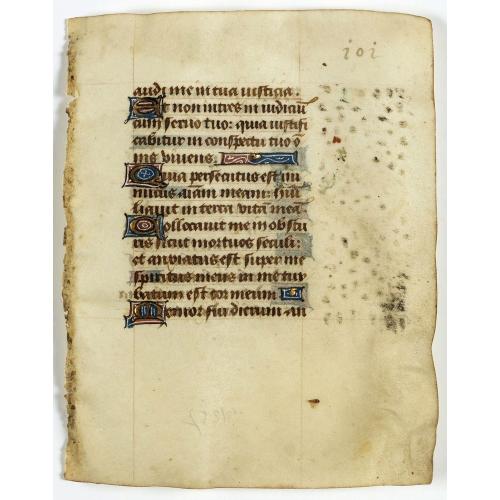 101
audi me in tua iusticia.
Et non intres in iudiciū
cum seruo tuo: quia iustifi
cabitur in conspectu tuo o
nīs viuens.
Quia persecutus est ini
micus aīam meam: hūi
liauit in terra vitā meā.
Collocauit me in obscu
ris sicut mortuos seculi:
et anxiatus est super me
spiritus meus in me tur
batum est cor meum
Memor fui dierum an